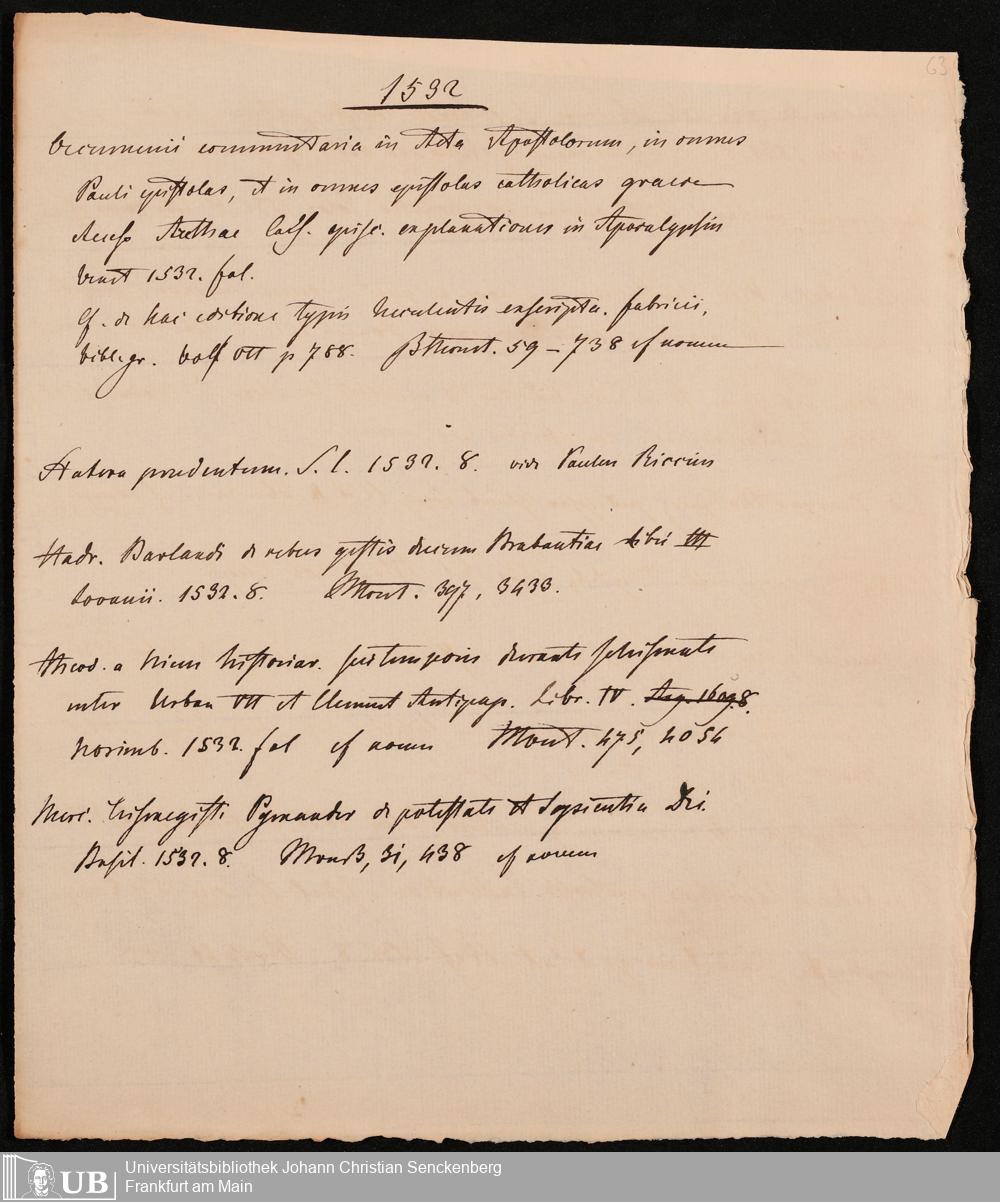 63
1532
Oecumenii commentaria in Acta Apostolorum, in omnes
Pauli epistolas, et in omnes epistolas catholicas graece
Access Arethae Caes. episc. explanationes in Apocalypsin
Venet 1532. fol.
Cf. de hac editione typis luculentis exscripta. fabricii,
bibl. gr. Vol VII p 788. BMount. 59 – 738 cf nomen
Statera prudentum. S. l. 1532. 8. vide Paulus Riccius
Hadr. Barlandi de rebus gestis ducum Brabantiae libri III
Lovanii. 1532. 8. Mount. 397, 3433.
Theod. a Niem historiar. sui temporis durante schismate
inter Urban VII et Clement Antipap. Libr. IV.
Norimb. 1532. fol cf nomen Mount. 475, 4054
Merc. Trismegisti Pymander de potestate et sapientia Dei.
Basil. 1532. 8. 31, 438 cf nomen
UB
Universitätsbibliothek Johann Christian Senckenberg
Frankfurt am Main